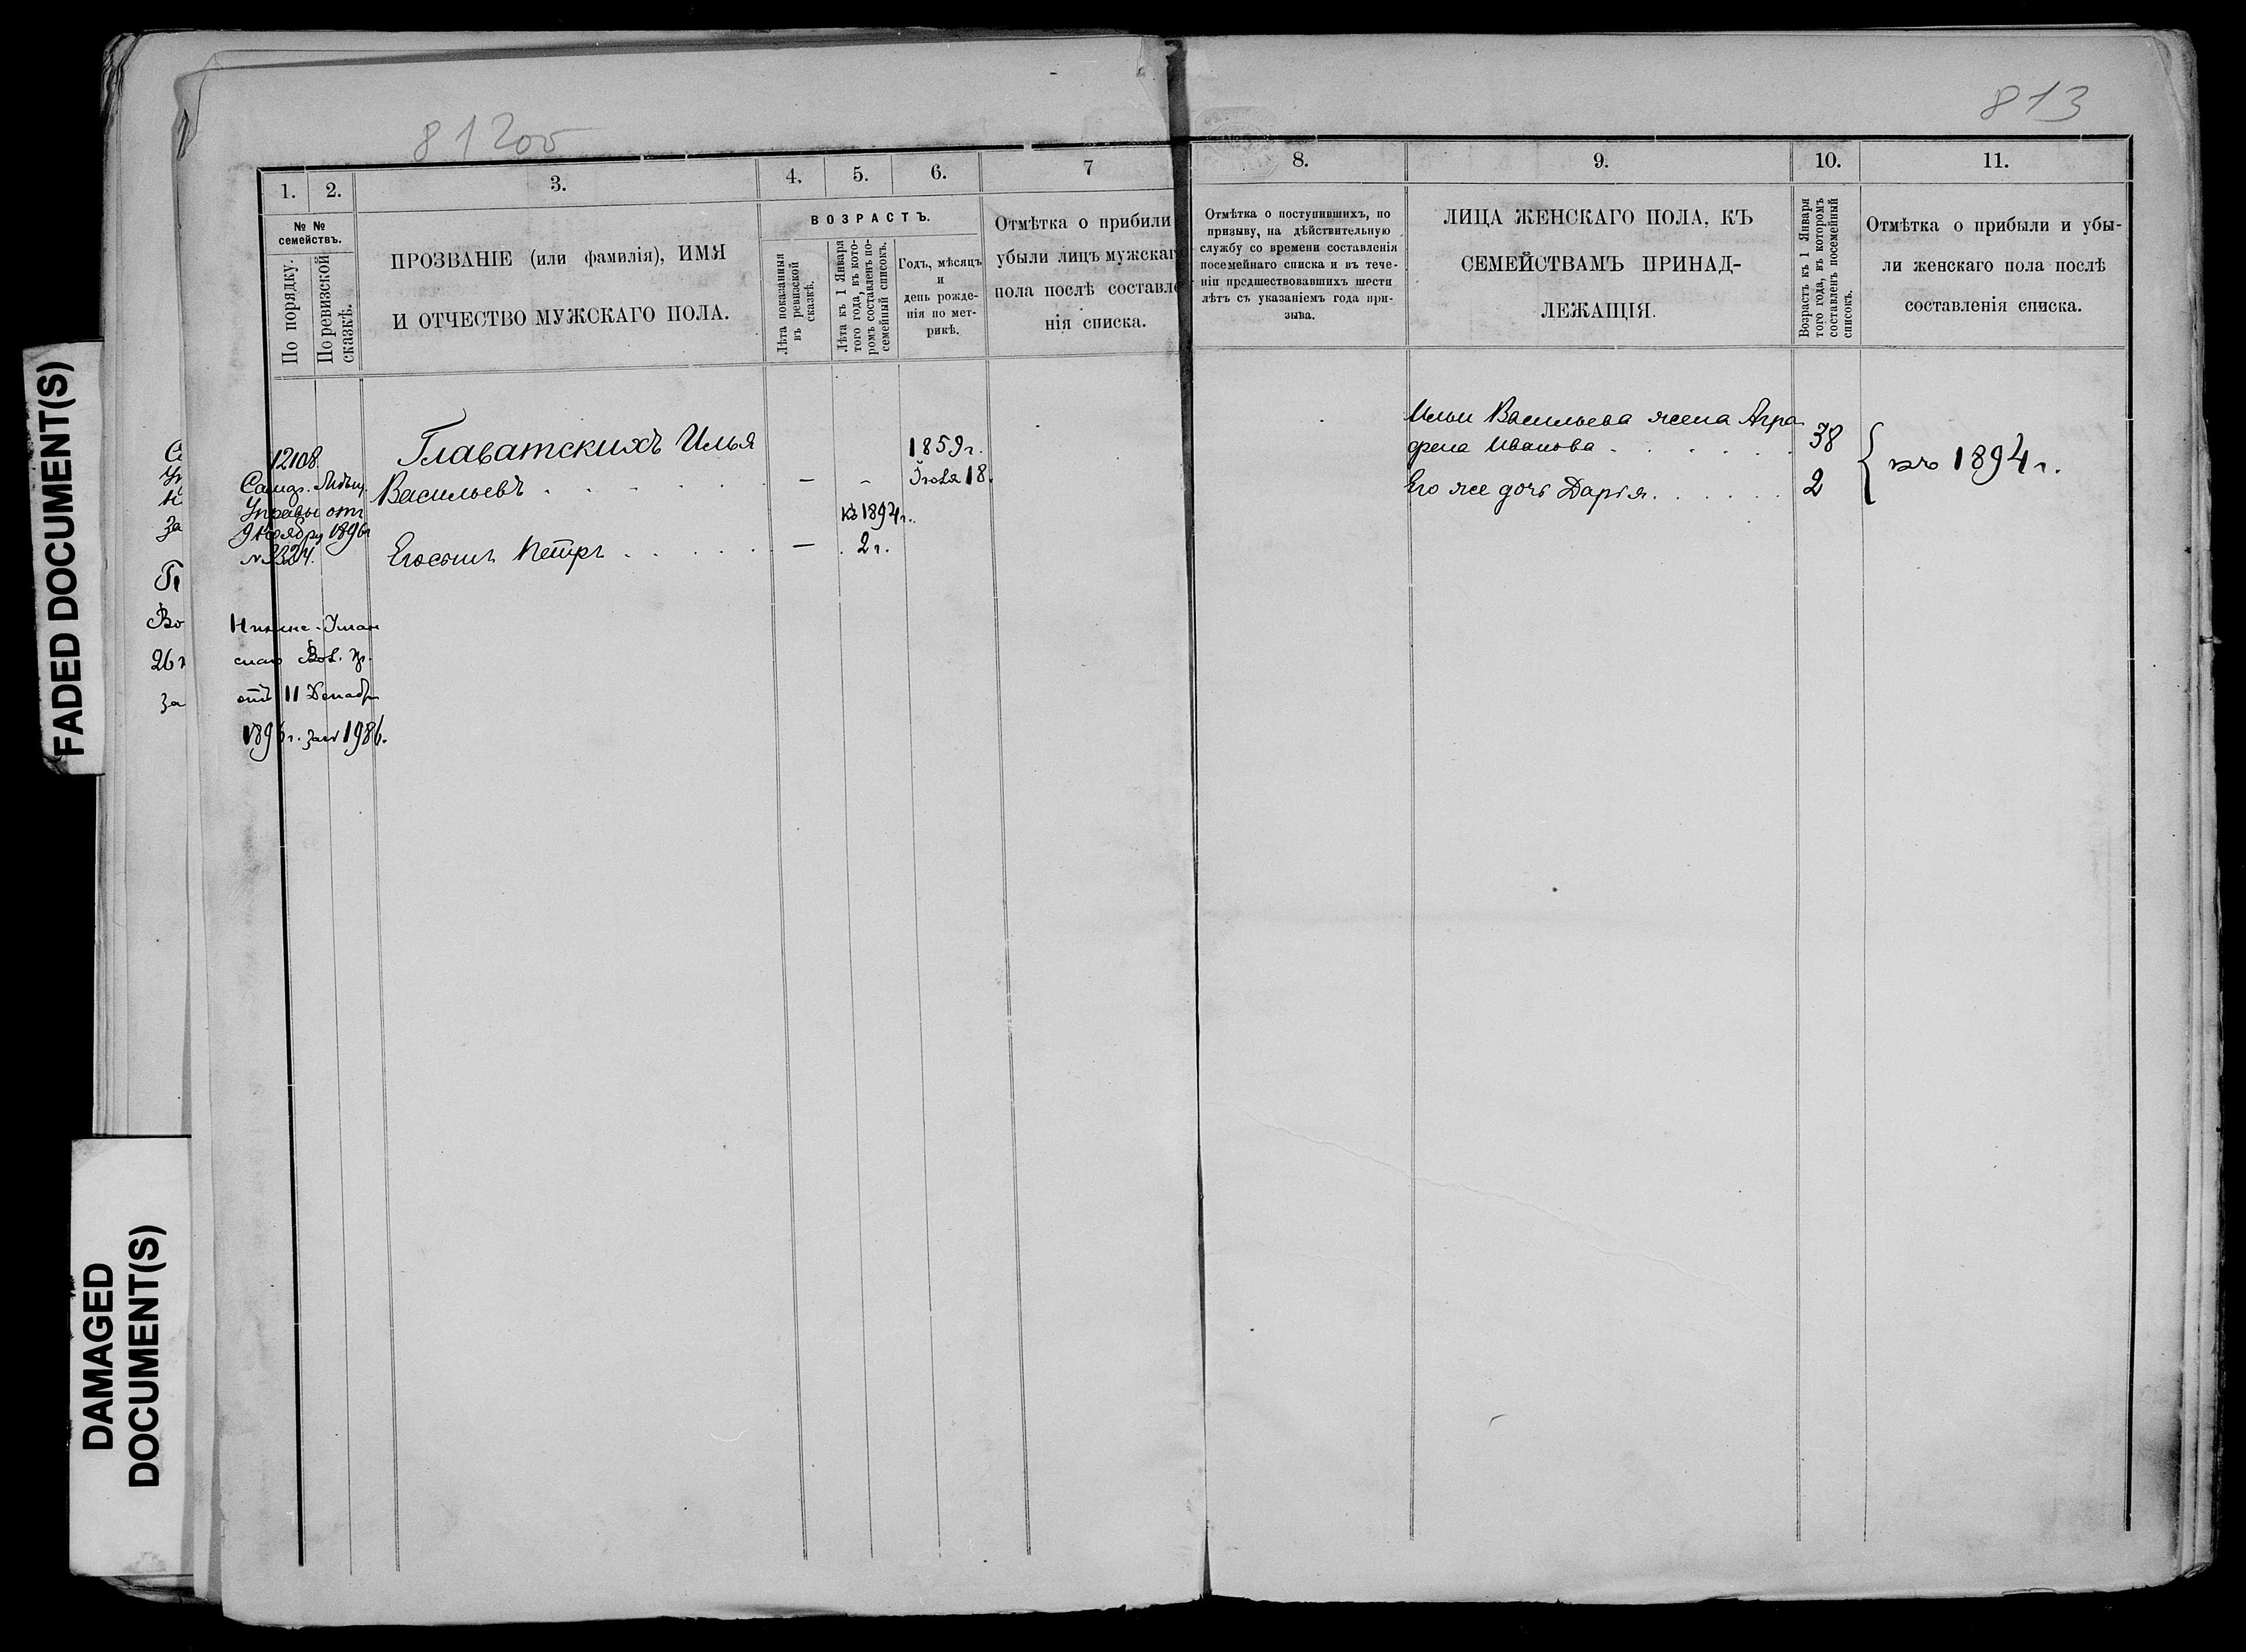 FADED DOCUMENT(S)
DAMAGED
DOCUMENT(S)
812об
1. 2. 3. 4. 5. 6. 7
№ №
семействъ.
По порядку.
По ревизской
сказкѣ.
ПРОЗВАНІЕ (или фамилія), ИМЯ
И ОТЧЕСТВО МУЖСКАГО ПОЛА.
ВОЗРАСТЪ.
Лѣта показанныя
въ ревизской
сказкѣ.
Лѣта къ 1 Января
того года, въ кото-
ромъ составленъ по-
семейный списокъ.
Годъ, мѣсяцъ
и
день рожде-
нія по мет-
рикѣ.
Отмѣтка о прибыли
убыли лицъ мужскаг
пола послѣ составле
нія списка.
12108
Управы отъ
9 Ноября 1896г
№3324.
Главатскихъ Илья
Васильевъ . . . . . . . — -
1859г.
Іюля 18.
къ 1894г.
Его сынъ Петръ . . . . . — . 2г.
от 11 Декабр
1896г. за№ 1986.
813
8. 9. 10. 11.
Отмѣтка о поступившихъ, по
призыву, на дѣйствительную
службу со времени составленія
посемейнаго списка и въ тече-
ніи предшествовавшихъ шести
лѣтъ съ указаніемъ года при-
зыва.
ЛИЦА ЖЕНСКАГО ПОЛА, КЪ
СЕМЕЙСТВАМЪ ПРИНАД-
ЛЕЖАЩІЯ.
Возрастъ къ 1 Января
того года, въ которомъ
составленъ посемейный
списокъ.
Отмѣтка о прибыли и убы-
ли женскаго пола послѣ
составленія списка.
Ильи Васильева жена Агра
фена Иванова . . . . . . 38
Его же дочь Дарья . . . . . . 2
къ 1894г.